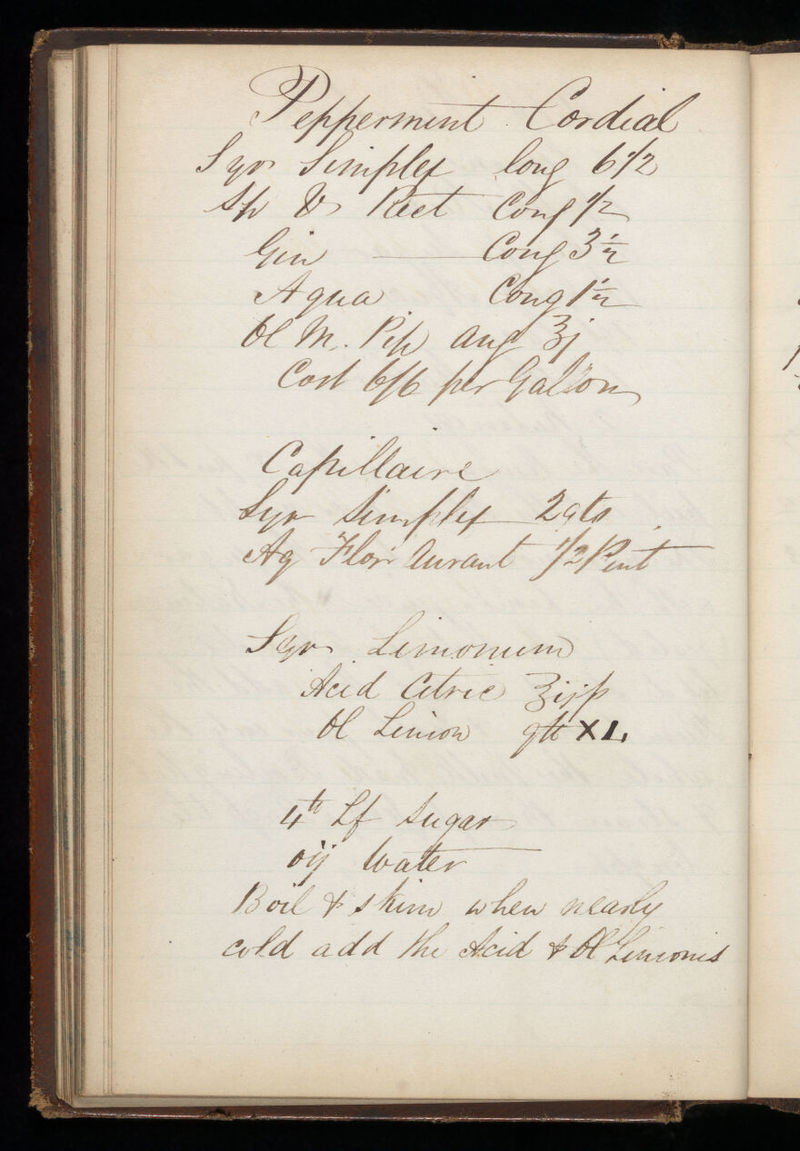 Pepperment Cordial
Syr Simplex Cong 6 1/2
Sp V Rect Cong 1/2
Gin — Cong 3 1/2
Aqua Cong 1 1/2
Ol M. Pip ang ʒj
Cost 6/6 per Gallon
Capillaire
Syr Simplex 2 qts
Aq Flor Aurant 1/2 Pint
Syr Limonum
Acid Citric ʒijß
Ol Limon gtt XL
4 lb Lf Sugar
oij Water
Boil & skim when nearly
cold add the Acid & Ol Limonis